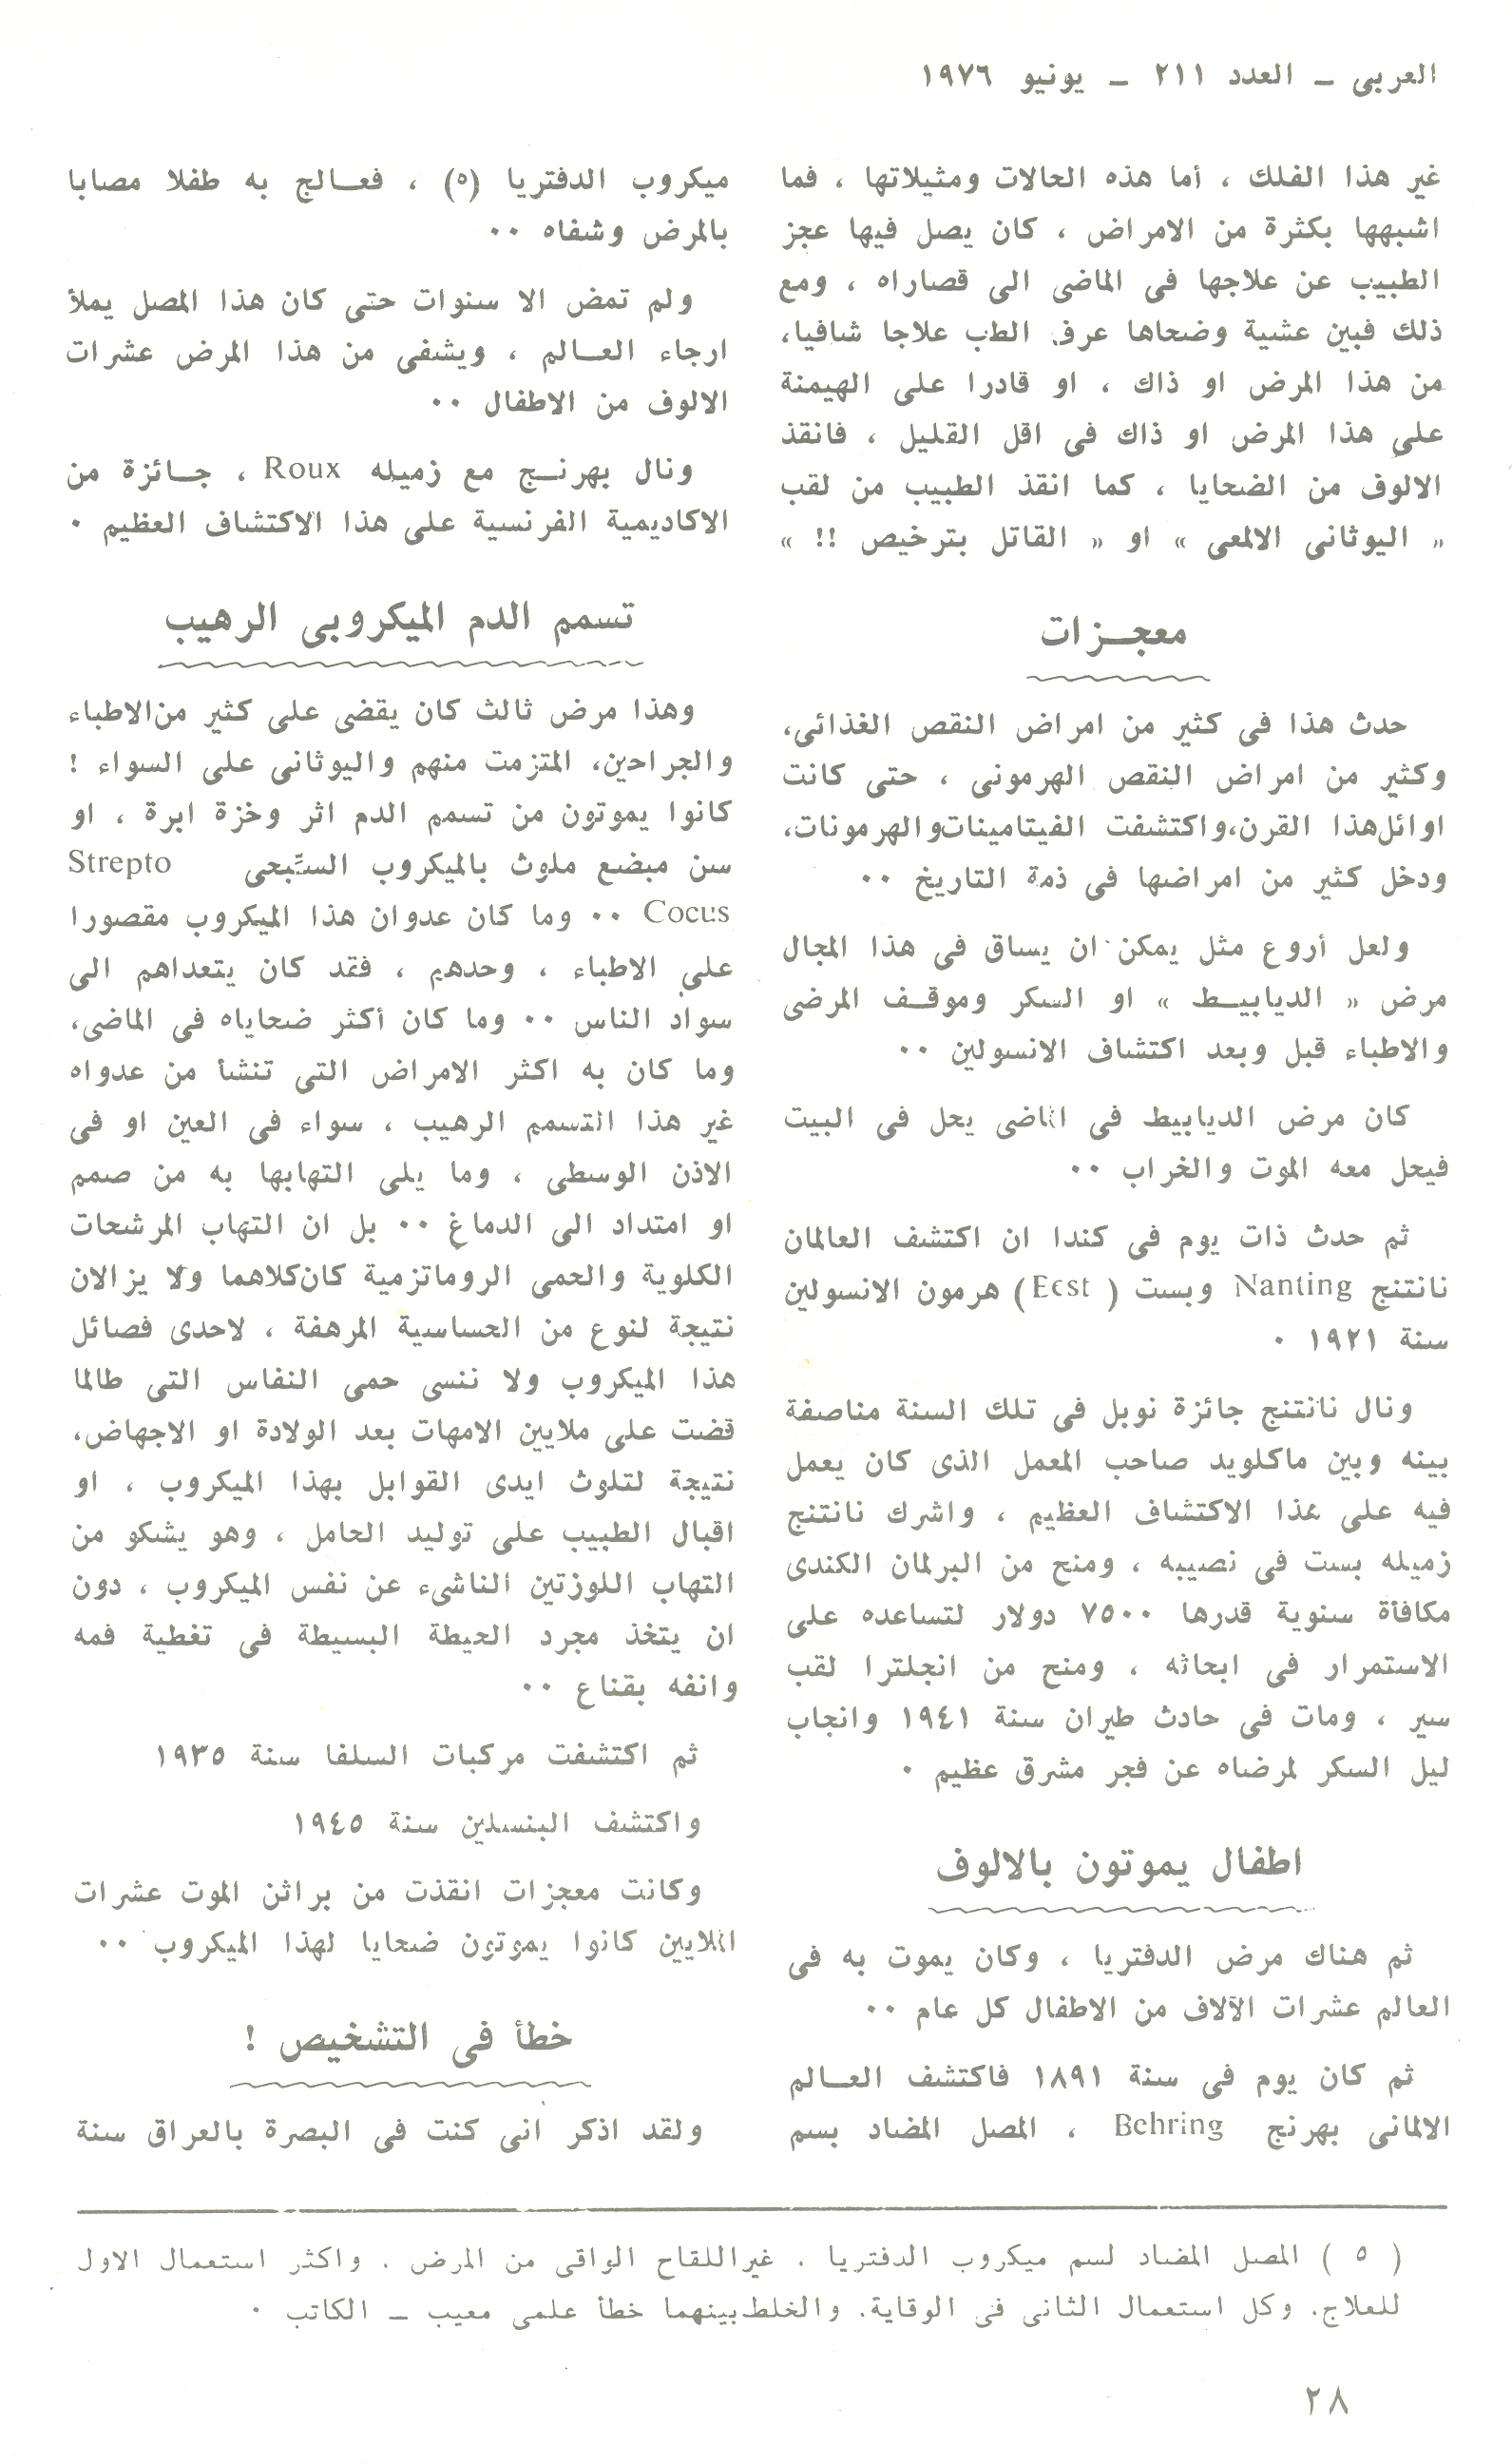 العربى ـ العدد ٢١١ ـ يونيو ١٩٧٦
غير هذا الفلك ، أما هذه الحالات ومثيلاتها ، فما
اشبهها بكثرة من الامراض ، كان يصل فيها عجز
الطبيب عن علاجها فى الماضى الى قصاراه ، ومع
ذلك فبين عشية وضحاها عرف الطب علاجا شافيا،
من هذا المرض او ذاك ، او قادرا على الهيمنة
على هذا المرض او ذاك فى اقل القليل ، فانقذ
الالوف من الضحايا ، كما انقذ الطبيب من لقب
« اليوثانى الالمعى » او « القاتل بترخيص !! »
معجــزات
حدث هذا فى كثير من امراض النقص الغذائى،
وكثير من امراض النقص الهرمونى ، حتى كانت
اوائل هذا القرن،واكتشفت الفيتامينات والهرمونات،
ودخل كثير من امراضها فى ذمة التاريخ ٠٠
ولعل أروع مثل يمكن ان يساق فى هذا المجال
مرض « الديابيـط » او السكر وموقـف المرضى
والاطباء قبل وبعد اكتشاف الانسولين ٠٠
كان مرض الديابيط فى الماضى يحل فى البيت
فيحل معه الموت والخراب ٠٠
ثم حدث ذات يوم فى كندا ان اكتشف العالمان
نانتنج Nanting وبست ( Eest ) هرمون الانسولين
سنة ١٩٢١ ٠
ونال نانتنج جائزة نوبل فى تلك السنة مناصفة
بينه وبين ماكلويد صاحب المعمل الذى كان يعمل
فيه على هذا الاكتشاف العظيم ، واشرك نانتنج
زميله بست فى نصيبه ، ومنح من البرلمان الكندى
مكافأة سنوية قدرها ٧٥٠٠ دولار لتساعده على
الاستمرار فى ابحاثه ، ومنح من انجلترا لقب
سير ، ومات فى حادث طيران سنة ١٩٤١ وانجاب
ليل السكر لمرضاه عن فجر مشرق عظيم ٠
اطفال يموتون بالالوف
ثم هناك مرض الدفتريا ، وكان يموت به فى
العالم عشرات الآلاف من الاطفال كل عام ٠٠
ثم كان يوم فى سنة ١٨٩١ فاكتشف العـالم
الالمانى بهرنج Behring ، المصل المضاد بسم
ميكروب الدفتريا (٥) ، فعـالج به طفلا مصابا
بالمرض وشفاه ٠٠
ولم تمض الا سنوات حتى كان هذا المصل يملأ
ارجاء العـالم ، ويشفى من هذا المرض عشرات
الالوف من الاطفال ٠٠
ونال بهرنـج مع زميله Roux ، جـائزة من
الاكاديمية الفرنسية على هذا الاكتشاف العظيم ٠
تسمم الدم الميكروبى الرهيب
وهذا مرض ثالث كان يقضى على كثير من الاطباء
والجراحين، المتزمت منهم واليوثانى على السواء !
كانوا يموتون من تسمم الدم اثر وخزة ابرة ، او
سن مبضع ملوث بالميكروب السّبحى Strepto
Cocus ٠٠ وما كان عدوان هذا الميكروب مقصورا
على الاطباء ، وحدهم ، فقد كان يتعداهم الى
سواد الناس ٠٠ وما كان أكثر ضحاياه فى الماضى،
وما كان به اكثر الامراض التى تنشأ من عدواه
غير هذا التسمم الرهيب ، سواء فى العين او فى
الاذن الوسطى ، وما يلى التهابها به من صمم
او امتداد الى الدماغ ٠٠ بل ان التهاب المرشحات
الكلوية والحمى الروماتزمية كان كلاهما ولا يزالان
نتيجة لنوع من الحساسية المرهفة ، لاحدى فصائل
هذا الميكروب ولا ننسى حمى النفاس التى طالما
قضت على ملايين الامهات بعد الولادة او الاجهاض،
نتيجة لتلوث ايدى القوابل بهذا الميكروب ، او
اقبال الطبيب على توليد الحامل ، وهو يشكو من
التهاب اللوزتين الناشىء عن نفس الميكروب ، دون
ان يتخذ مجرد الحيطة البسيطة فى تغطية فمه
وانفه بقناع ٠٠
ثم اكتشفت مركبات السلفا سنة ١٩٣٥
واكتشف البنسلين سنة ١٩٤٥
وكانت معجزات انقذت من براثن الموت عشرات
الملايين كانوا يموتون ضحايا لهذا الميكروب ٠٠
خطأ فى التشخيص !
ولقد اذكر انى كنت فى البصرة بالعراق سنة
( ٥ ) المصل المضاد لسم ميكروب الدفتريا . غير اللقاح الواقى من المرض . واكثر استعمال الاول
للعلاج. وكل استعمال الثانى فى الوقاية. والخلط بينهما خطأ علمى معيب ـ الكاتب ٠
٢٨